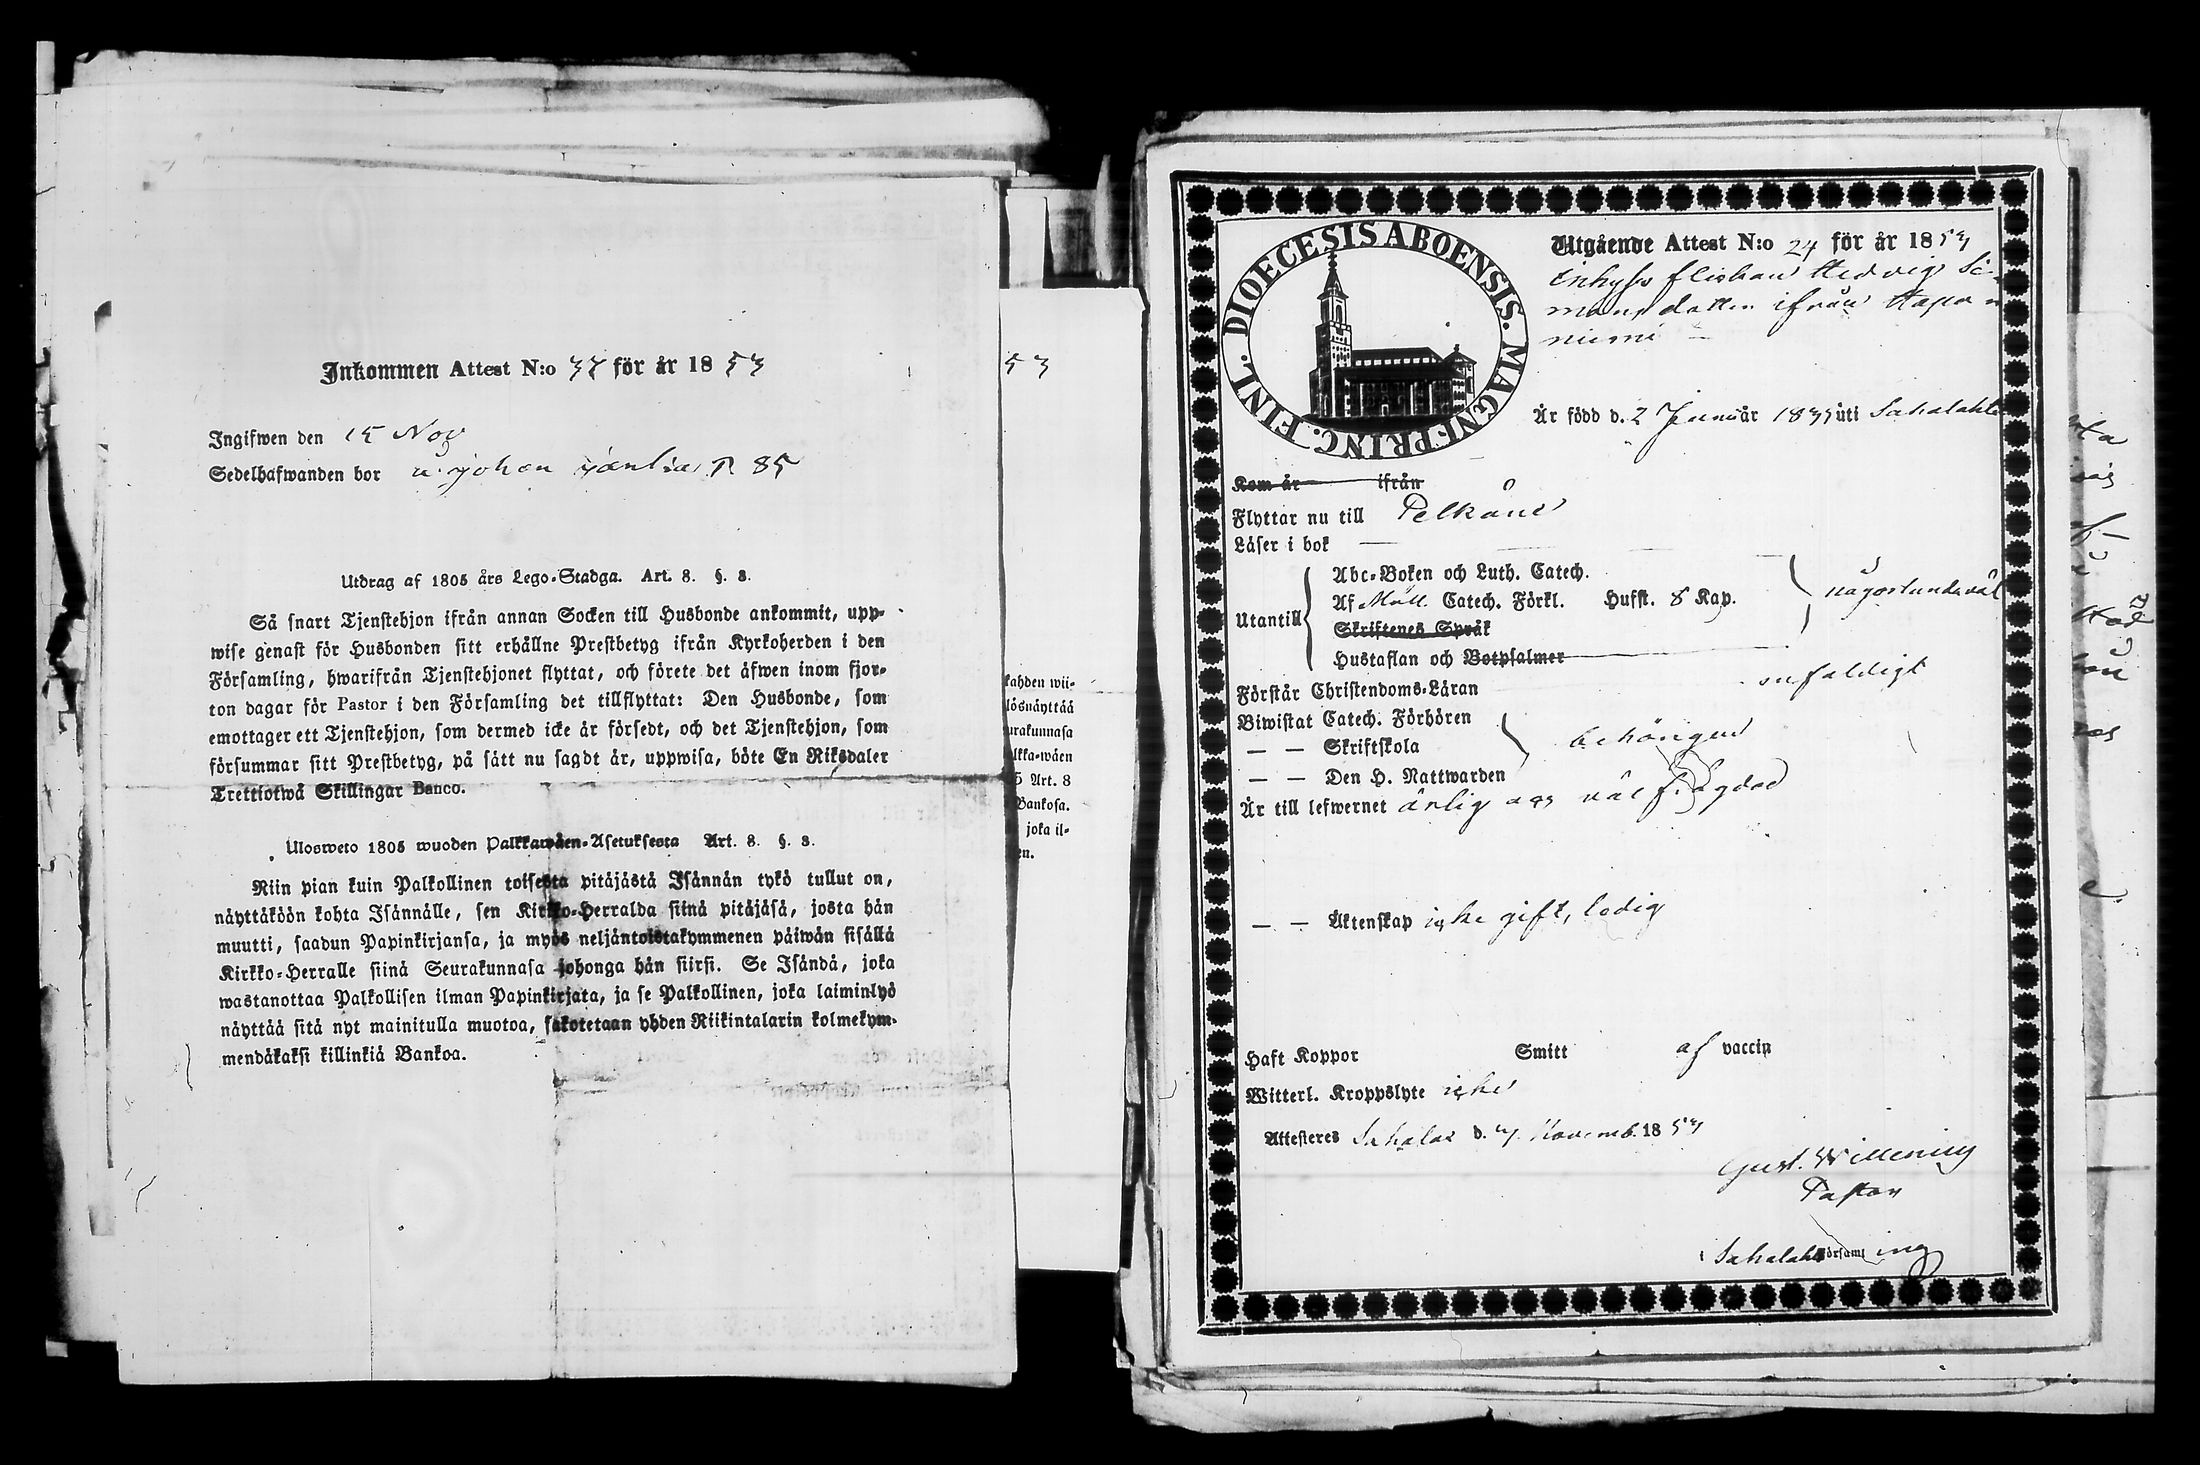 Inkommen Attest N:o 37 för år 1853
Ingifwen den 15 Nov
Sedelhafwanden bor u. Johan R 85
Utdrag af 1805 års Lego-Stadga. Art. 8. §. 3.
Så snart Tjenstehjon ifrån annan Socken till Husbonde ankommit, upp-
wise genast för Husbonden sitt erhållne Prestbetyg ifrån Kyrkoherden i den
Församling, hwarifrån Tjenstehjonet flyttat, och förete det äfwen inom fjor-
ton dagar för Pastor i den Församling det tillflyttat: Den Husbonde, som
emottager ett Tjenstehjon, som dermed icke är försedt, och det Tjenstehjon, som
försummar sitt Prestbetyg, på sätt nu sagdt är, uppwisa, böte En Riksdaler
Trettiotwå Skillingar Banco.
Ulosweto 1805 wuoden Palkkawäen-Asetuksesta Art. 8. §. 3.
Niin pian kuin Palkollinen toisesta pitäjästä Isännän tykö tullut on,
näyttäköön kohta Isännälle, sen Kirkko-Herralda siinä pitäjäsä, josta hän
muutti, saadun Papinkirjansa, ja myös neljäntoistakymmenen päiwän sisällä
Kirkko-Herralle siinä Seurakunnasa johonga hän siirsi. Se Isändä, joka
wastanottaa Palkollisen ilman Papinkirjata, ja se Palkollinen, joka laiminlyö
näyttää sitä nyt mainitulla muotoa, sakotetaan yhden Riikintalarin kolmekym-
mendäkaksi killinkiä Bankoa.
53
kahden wii-
lösnäyttää
urakunnasa
lkka-wäen
5 Art. 8
Bankosa.
joka il-
en.
DIOECESIS ABOENSIS. MAGNI. PRINC. FINL.
Utgående Attest N:o 24 för år 1853
Inhyses flickan Hedvig Si-
mansdotter ifrån Hapa
niemi
Är född d. 2 Januari år 1835 uti Sahalahti
Kom år ifrån
Flyttar nu till Pelkäne
Läser i bok
Utantill
Abc-Boken och Luth. Catech.
Af Möll. Catech. Förkl. Hufst. 8 Kap.
någorlunda väl
Skriftenes Språk
Hustaflan och Botpsalmer
Förstår Christendoms-Läran enfaldigt
Biwistat Catech. Förhören
— — Skriftskola behörigen
— — Den H. Nattwarden
Är till lefwernet ärlig och väl frägdad
— — Äktenskap icke gift, ledig
Haft Koppor Smitt af vaccin
Witterl. Kroppslyte icke
Attesteres Sahalax d. Novemb. 1853
Gust. Willening
Pastor
i Sahalahti församling